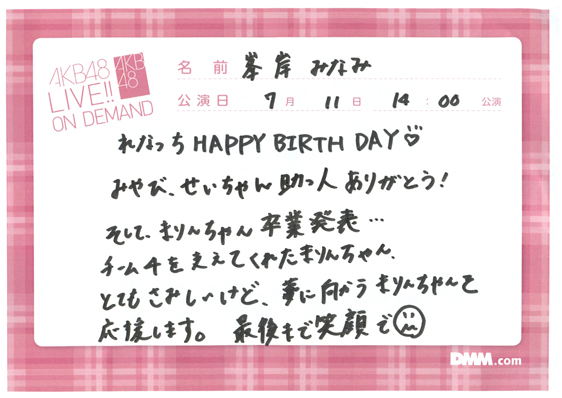 AKB48
LIVE!!
ON DEMAND
AKB
48
名前 峯岸 みなみ
公演日 7月 11日 14:00 公演
れなっち HAPPY BIRTH DAY♡
みやび、せいちゃん 助っ人 ありがとう！
そして、まりんちゃん 卒業発表…
チーム4を支えてくれたまりんちゃん、
とてもさみしいけど、夢に向かうまりんちゃんを
応援します。 最後まで笑顔で
DMM.com